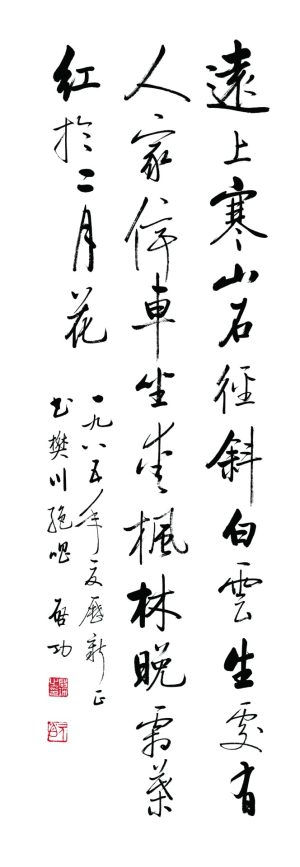 遠上寒山石徑斜白雲生處有
人家停車坐愛楓林晚霜葉
紅於二月花
一九八五年夏曆新正
書樊川絕唱 啓功